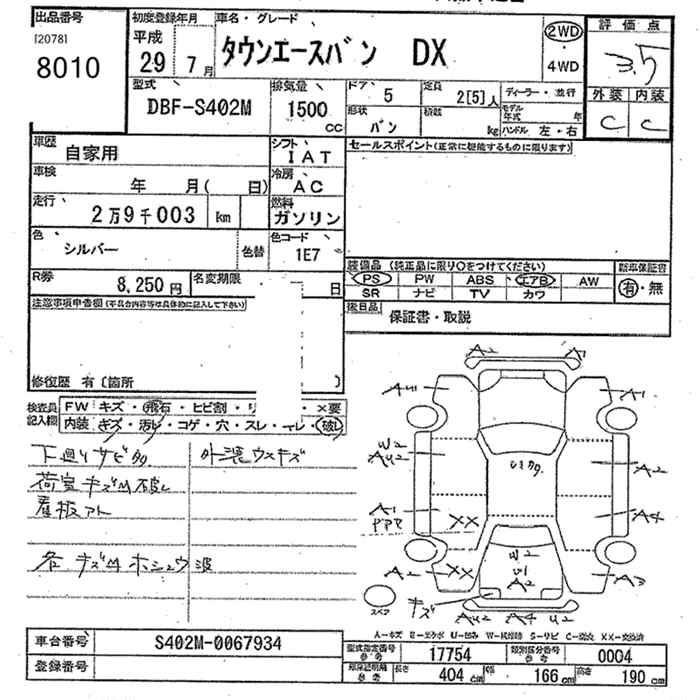 出品番号
[2078]
8010
初度登録年月
平成
29 7月
車名・グレード
タウンエースバン DX
2WD
4WD
評価点
3.5
型式
DBF-S402M
排気量
1500
cc
ドア
5
形状
バン
定員
2[5]人
積載
kg
ディーラー・並行
モデル年式 年
ハンドル 左・右
外装 内装
C C
車歴
自家用
シフト
IAT
セールスポイント(正常に機能するものに限ります)
車検
年 月( 日)
冷房
AC
走行
2万9千003 km
燃料
ガソリン
色
シルバー
色替
色コード
1E7
R券
8,250円
名変期限
日
装備品 (純正品に限り○をつけてください)
PS PW ABS エアB AW
SR ナビ TV カワ
新車保証書
有・無
注意事項申告欄(不具合内容等は具体的に記入して下さい)
後日品
保証書・取説
修復歴 有〔箇所 〕
検査員記入欄
FW キズ・飛石・ヒビ割・リ ・×要
内装 キズ・汚れ・コゲ・穴・スレ・ ・破れ
下廻りサビ多
外装ウスキズ
荷室キズM
看板アト
各キズM ホシュウ
A2 A1
AU1 A1
W2
AU2
U1多
A2
A1
PPR
XX
A4
W2
U1
A2
A2 XX
A3
キズ
スペア
AU2 A4 U2
A-キズ E-エクボ U-凹み W-補修跡 S-サビ C-腐食 XX-交換済
車台番号
S402M-0067934
登録番号
型式指定番号
参考
17754
類別区分番号
参考
0004
参考
長さ
404 cm
幅
166 cm
高さ
190 cm